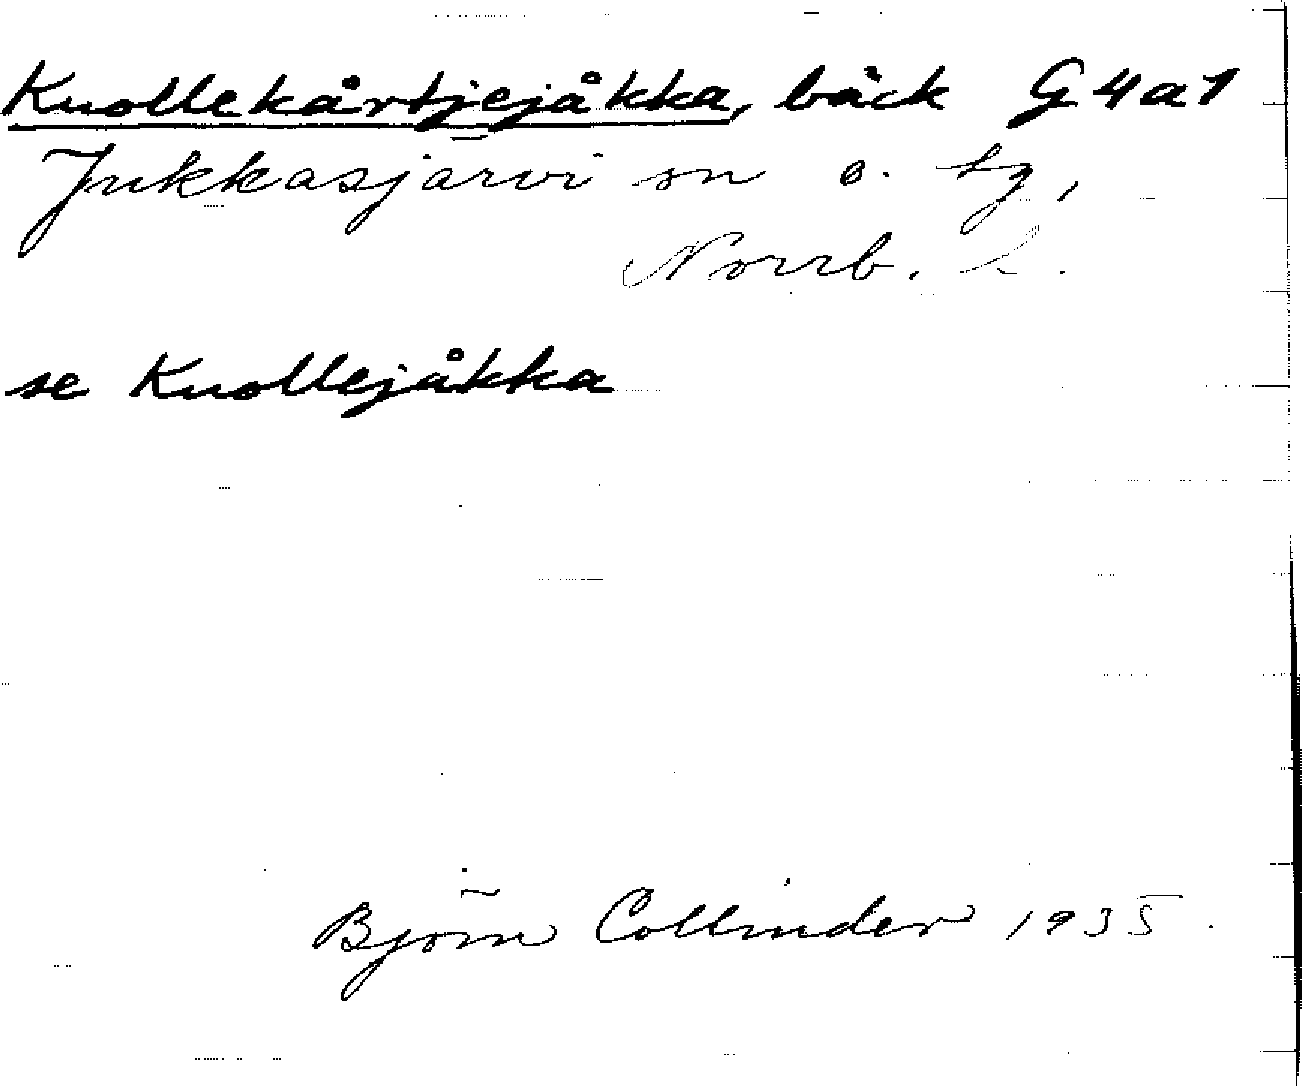 Kuollekårtjejåkka, bäck G4a1
Jukkasjärvi sn o. tg,
Norrb. l.
se Kuollejåkka
Björn Collinder 1935.